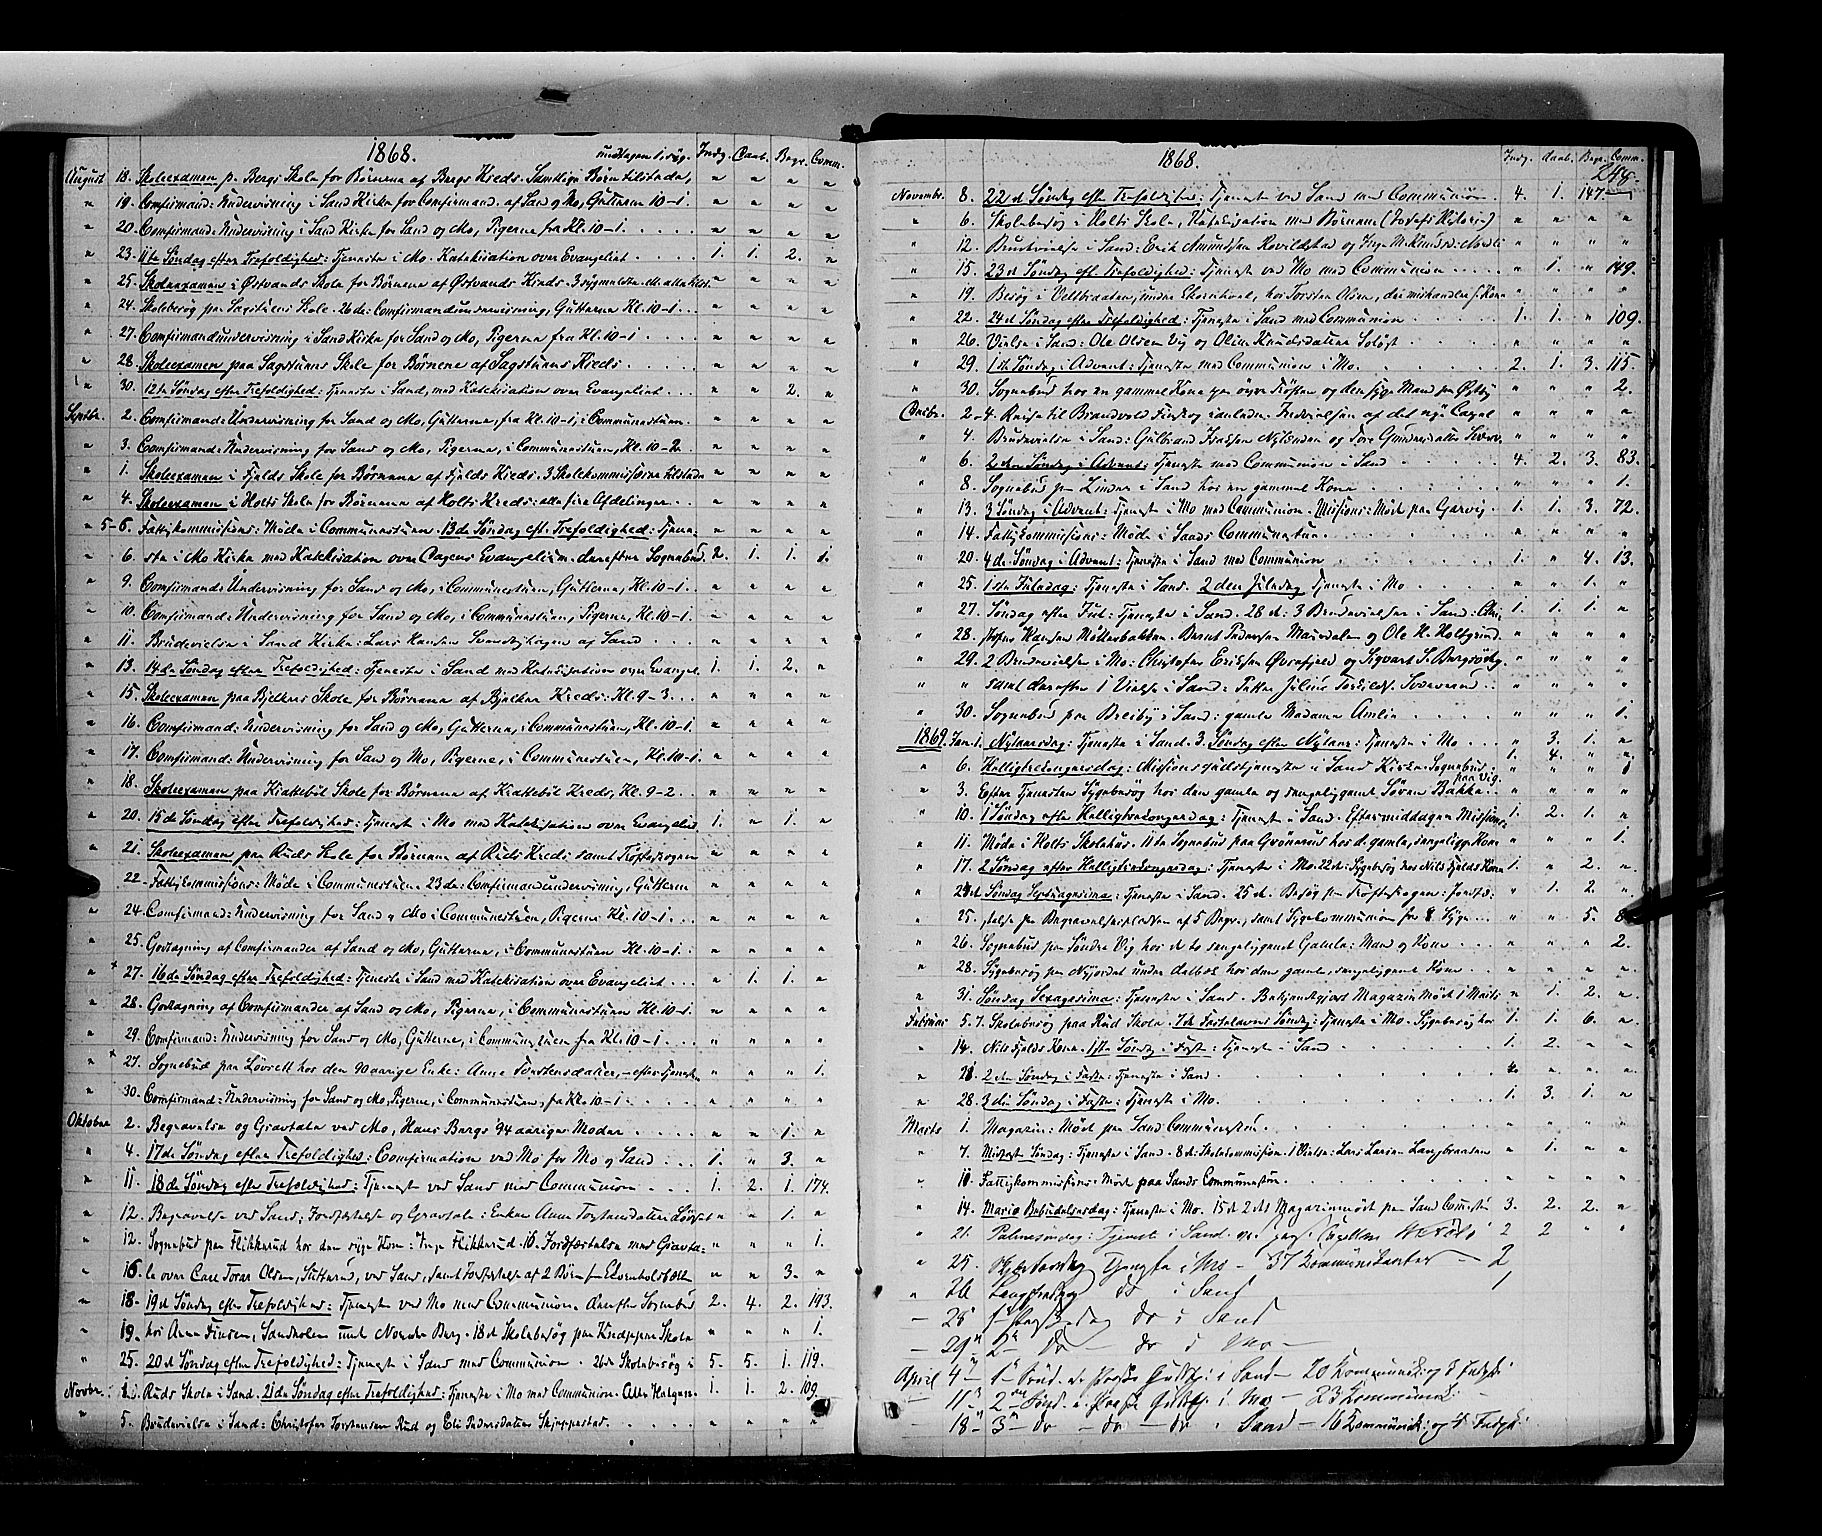 1868.
undtagen 1, søg. Indg. Daab. Begr. Comm.
August 18. Skoleexamen p. Bergs Skole for Børnene af Bergs Kreds. Samtlige Børn tilstede, " " " "
" 19. Confirmand: Undervisning i Sand Kirke for Confirmand. af Sand og Mo, Gutterne 10-1. " " " "
" 20. Confirmand: Undervisning i Sand Kirke for Sand og Mo, Pigerne fra Kl. 10-1. " " " "
" 23. 11te Søndag efter Trefoldighed: Tjeneste i Mo. Katekisation over Evangeliet 1. 1. 2. "
" 25. Skoleexamen i Østvands Skole for Børnene af Østvands Kreds " " " "
" 24. Skolebesøg paa Sagstuens Skole. 26de: Confirmandundervisning, Gutterne Kl. 10-1. " " " "
" 27. Confirmandundervisning i Sand Kirke for Sand og Mo, Pigerne fra Kl. 10-1. " " " "
" 28. Skoleexamen paa Sagstuens Skole for Børnene af Sagstuens Kreds " " " "
" 30. 12te Søndag efter Trefoldighed: Tjeneste i Sand, med Katekisation over Evangeliet " " 2. "
Septbr. 2. Confirmand: Undervisning for Sand og Mo, Gutterne, fra Kl. 10-1, i Communestuen. " " " "
" 3. Confirmand: Undervisning for Sand og Mo, Pigerne, i Communestuen, Kl. 10-2. " " " "
" 1. Skoleexamen i Fjelds Skole for Børnene af Fjelds Kreds. 3 Skolekommissærer tilstede " " " "
" 4. Skoleexamen i Holts Skole for Børnene af Holts Kreds: alle fire Afdelinger. " " " "
" 5-6. Fattigkommissions: Møde i Communestuen. 13de Søndag eft. Trefoldighed: Tjene- " " " "
" 6. ste i Mo Kirke med Katekisation over Dagens Evangelium. derefter Sognebud. 2. 1. 1. 1.
" 9. Confirmand: Undervisning for Sand og Mo, i Communestuen, Gutterne, Kl. 10-1. " " " "
" 10. Confirmand: Undervisning for Sand og Mo, i Communestuen, Pigerne, Kl. 10-1. " " " "
" 11. Brudevielse i Sand Kirke: Lars Hansen Svenskehagen af Sand " " " "
" 13. 14de Søndag efter Trefoldighed: Tjeneste i Sand med Katekisation over Evangel. 1. 1. 2. "
" 15. Skoleexamen paa Bjelkes Skole for Børnene af Bjelkes Kreds: Kl. 9-3. " " " "
" 16. Confirmand: Undervisning for Sand og Mo, Gutterne, i Communestuen, Kl. 10-1. " " " "
" 17. Confirmand: Undervisning for Sand og Mo, Pigerne, i Communestuen, Kl. 10-1. " " " "
" 18. Skoleexamen paa Krakkebøl Skole for Børnene af Krakkebøl Kreds, Kl. 9-2. " " " "
" 20. 15de Søndag efter Trefoldighed: Tjeneste i Mo med Katekisation over Evangeliet 1. " 1. "
" 21. Skoleexamen paa Ruds Skole for Børnene af Ruds Kreds samt Tröfteskogen " " " "
" 22. Fattigkommissions: Møde i Communestuen. 23de: Confirmandundervisning, Gutterne " " " "
" 24. Confirmand: Undervisning for Sand og Mo i Communestuen, Pigerne Kl. 10-1. " " " "
" 25. Godtagning af Confirmander af Sand og Mo, Gutterne, i Communestuen Kl. 10-1. " " " "
" 27. 16de Søndag efter Trefoldighed: Tjeneste i Sand med Katekisation over Evangeliet " 1. 1. "
" 28. Godtagning af Confirmander af Sand og Mo, Pigerne, i Communestuen Kl. 10-1. " " " "
" 29. Confirmand: Undervisning for Sand og Mo, Gutterne, i Communestuen fra Kl. 10-1. " " " "
" 27. Sognebud paa Løvsett hos den 90aarige Enke: Anne Torstensdatter, - efter Tjenesten " " " 1.
" 30. Confirmand: Undervisning for Sand og Mo, Pigerne, i Communestuen, fra Kl. 10-1. " " " "
Oktober 2. Begravelse og Gravtale ved Mo, Hans Bergs 94 aarige Moder " " 1. "
" 4. 17de Søndag efter Trefoldighed: Confirmation ved Mo for Mo og Sand 1. " 3. "
" 11. 18de Søndag efter Trefoldighed: Tjeneste ved Sand med Communion 1. 2. 1. 174.
" 12. Begravelse ved Sand; Jordfæstelse og Gravtale: Enken Anne Torstensdatter Løvset " " 1. "
" 12. Sognebud paa Flikkerud hos den syge Kone: Inge Flikkerud. 16. Jordfæstelse med Gravta- " " " 1.
" 16. le over Carl Torer Olsen, Sutterud, ved Sand, samt Jordfæstelse af 2 Børn " " 3. "
" 18. 19de Søndag efter Trefoldighed: Tjeneste ved Mo med Communion. derefter Sognebud 2. 4. 2. 193.
" 19. hos Anne Finsen, Sandholen Nordre Berg. 18de Skolebesøg paa Skole " " " 1.
" 25. 20de Søndag efter Trefoldighed: Tjeneste i Sand med Communion. 26de Skolebesøg i 5. 5. 1. 119.
Novbr. 1. Ruds Skole i Sand. 21de Søndag efter Trefoldighed: Tjeneste i Mo med Communion. Alle Helgens. 1. 1. 2. 109.
" 5. Brudevielse i Sand: Christofer Torstensen Rud og Eli Pedersdatter Skjeppestad. " " " "
1868. Indg. Daab. Begr. Comm.
244.
Novembr. 8. 22de Søndag efter Trefoldighed: Tjeneste ved Sand med Communion 4. 1. 147
" 6. Skolebesøg i Holts Skole, Katekisation med Børnene (Josefs Historie) " " " "
" 12. Brudevielse i Sand: Erik Amundsen Kovildstad og " " " "
" 15. 23de Søndag eft. Trefoldighed: Tjeneste ved Mo med Communion " 1. " 149.
" 19. Besøg i Veltbraaten, hos Torsten Olsen, der mishandler s. Kone " " " "
" 22. 24de Søndag efter Trefoldighed: Tjeneste i Sand med Communion 1. 1. " 109.
" 26. Vielse i Sand: Ole Olsen Vig og Oline Knudsdatter " " " "
" 29. 1ste Søndag i Advent: Tjeneste med Communion i Mo. 2. 1. 3. 115.
" 30. Sognebud hos en gammel Kone paa øvre Tröften og den syge Mand paa " " " 2.
Decbr. 2-4. Reise til Brandvold i anledn. Indvielsen af det nye Capel " " " "
" 4. Brudevielse i Sand: Gulbrand " " " "
" 6. 2den Søndag i Advent: Tjeneste med Communion i Sand 4. 2. 3. 83.
" 8. Sognebud paa Linder i Sand hos en gammel Kone " " " 1.
" 13. 3 Søndag i Advent: Tjeneste i Mo med Communion. Missions: Møde paa Garvig. 1. 1. 3. 72.
" 14. Fattigkommissions: Møde i Sands Communestue. " " " "
" 20. 4de Søndag i Advent: Tjeneste i Sand med Communion 1. " 4. 13.
" 25. 1ste Juledag: Tjeneste i Sand. 2den Juledag Tjeneste i Mo " " 1. "
" 27. Søndag efter Jul: Tjeneste i Sand. 28de: 3 Brudevielser i Sand: Chri- 1. 1. 1. "
" 28. stofer Hansen Møllerbakken. Bernt Pedersen Mausdalen og Ole H. Holtgrind. " " " "
" 29. 2 Brudevielser i Mo: Christofer Eriksen Øvrefjeld og Sigvart S. " " " "
" " samt derefter 1 Vielse i Sand: Petter Julius " " " "
" 30. Sognebud paa Breiby i Sand: gamle Madame Amlie " " " 1.
1869. Jan. 1. Nytaarsdag: Tjeneste i Sand. 3. Søndag efter Nytaar: Tjeneste i Mo " 3. 1. "
" 6. Helligtrekongersdag: Missionsgudstjeneste i Sand Kirke. Sognebud paa Vig. 1. 4. " "
" 3. Efter Tjenesten Sygebesøg hos den gamle og sengeliggende Søren Bakke " " " 1
" 10. 1 Søndag efter Helligtrekongersdag: Tjeneste i Sand. Eftermiddagen Missions- 1. 2. 1. "
" 11. Møde i Holts Skolehus. 11te Sognebud paa Grönerud hos d. gamle, sengeligg. Kone " " " 1.
" 17. 2 Søndag efter Helligtrekongersdag: Tjeneste i Mo. 22de: Sygebesøg hos Nils Fjelds Kone 1. " 2. "
" 24de Søndag Septuagesima: Tjeneste i Sand. 25de. Besøg paa Tröfteskogen: Jordfæ- " 1. 2. "
" 25. stelse paa Begravelsespladsen af 5 Begr., samt Sygekommunion for 8 Syge " " 5. 8
" 26. Sognebud paa Søndre Vig hos de to sengeliggende Gamle: Mand og Kone " " " 2.
" 28. Sygebesøg paa Nyjordet under hos den gamle, sengeliggende Kone " " " "
" 31. Søndag Sexagesima: Tjeneste i Sand. Bekjendtgjort Magazin Møde 1 Marts " 1. 2. "
Februar 5. 7. Skolebesøg paa Rud Skole. 7de Fastelavns Søndag: Tjeneste i Mo. Sygebesøg hos 1. 1. 6. "
" 14. Nils Fjelds Kone. 1ste Søndag i Faste: Tjeneste i Sand 1. 2. " "
" 21. 2den Søndag i Faste: Tjeneste i Sand. " " "
" 28. 3die Søndag i Faste: Tjeneste i Mo. 1. 3. 1. "
Marts 1. Magazin: Møde paa Sand Communestue. " " " "
" 7. Midfaste Søndag: Tjeneste i Sand. 8de: Skolekommission. 1 Vielse: Lars Larsen Langbraaten " 1. " "
" 10. Fattigkommissions: Møde paa Sands Communestue. " " " "
" 14. Mariæ Bebudelsesdag: Tjeneste i Mo. 15de 2det Magazinmøde paa Sand 3. 2. 2. "
" 21. Palmesøndag: Tjeneste i Sand ved pers. Capellan 2 2 " "
" 25. Skjertorsdag Tjeneste i Mo - 37 Kommunikanter - 2
" 26 Langfredag do i Sand 1
- 28 1ste Paaskedag do i Sand
- 29" 2den do do i Mo -
April 4" - 1ste Sønd. e. Paaske Gudstj: i Sand - 20 Kommunik: og 8 Indgk:
- 11" 2den Sønd. e. Paaske Gudstj: i Mo - 23 Kommunik: -
- 18" - 3die - do - do - do Sand - 16 Kommunik: og 4 Indgk: